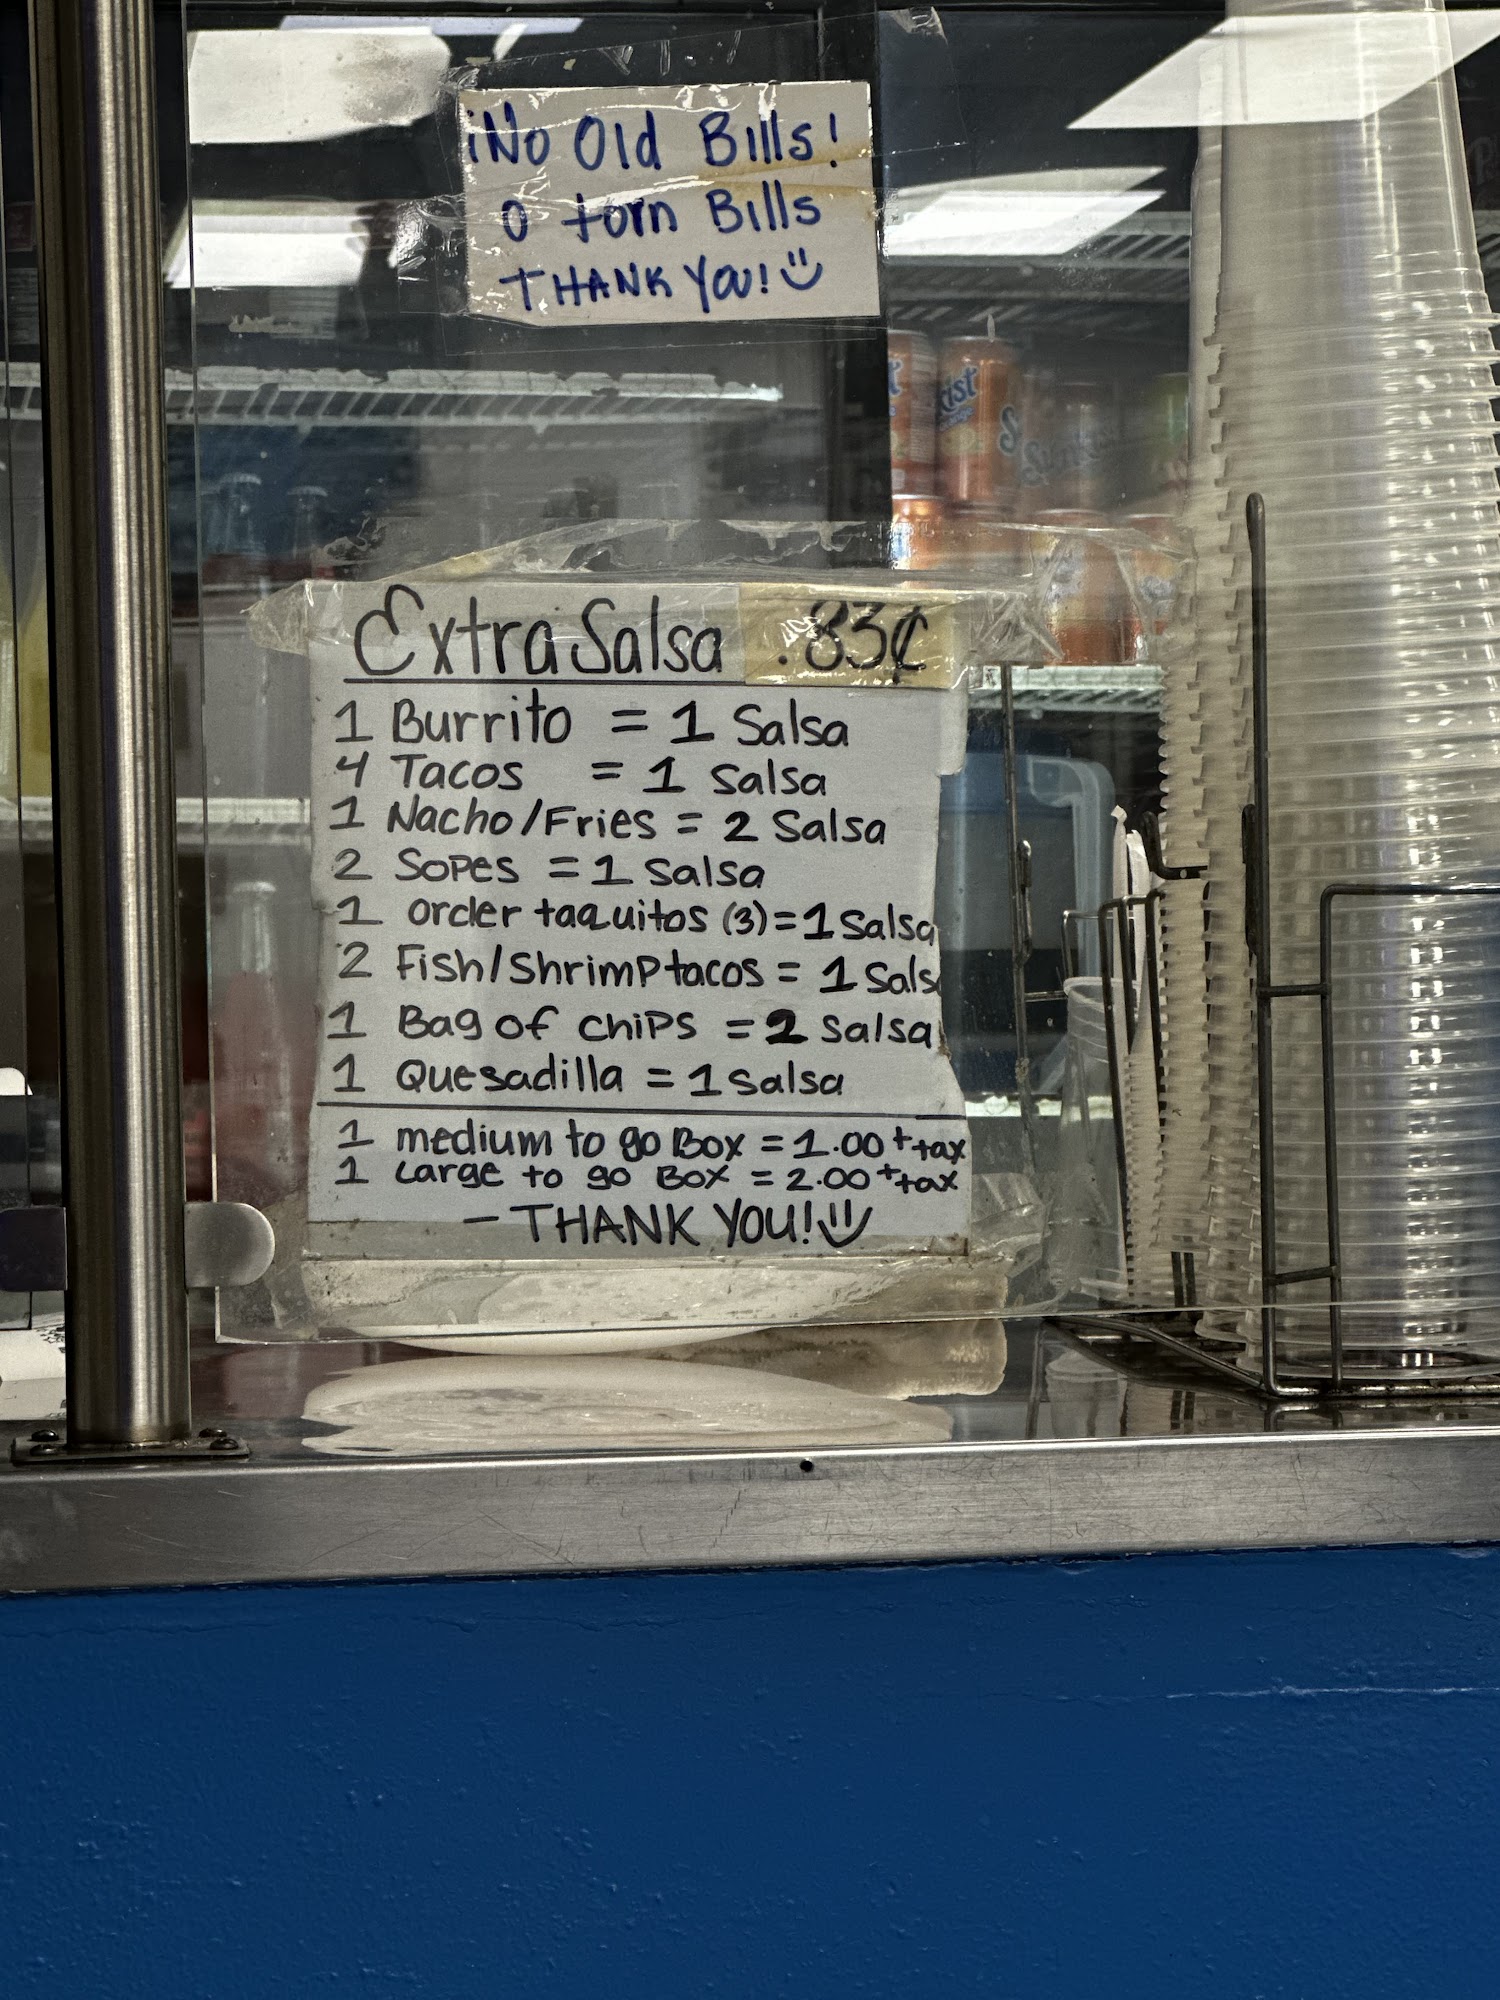 ¡No Old Bills!
O torn Bills
THANK YOU!
Extra Salsa .83¢
1 Burrito = 1 Salsa
4 Tacos = 1 Salsa
1 Nacho/Fries = 2 Salsa
2 Sopes = 1 Salsa
1 order taquitos (3) = 1 Salsa
2 Fish/Shrimp tacos = 1 Sals
1 Bag of chips = 2 Salsa
1 Quesadilla = 1 Salsa
1 medium to go Box = 1.00 + tax
1 Large to go Box = 2.00 + tax
- THANK YOU!
kist
Sunkist